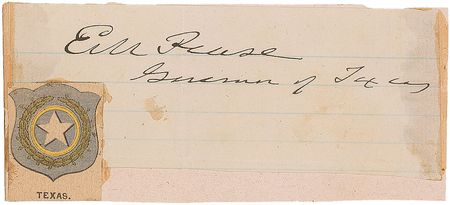 E M Pease
Governor of Texas
TEXAS.